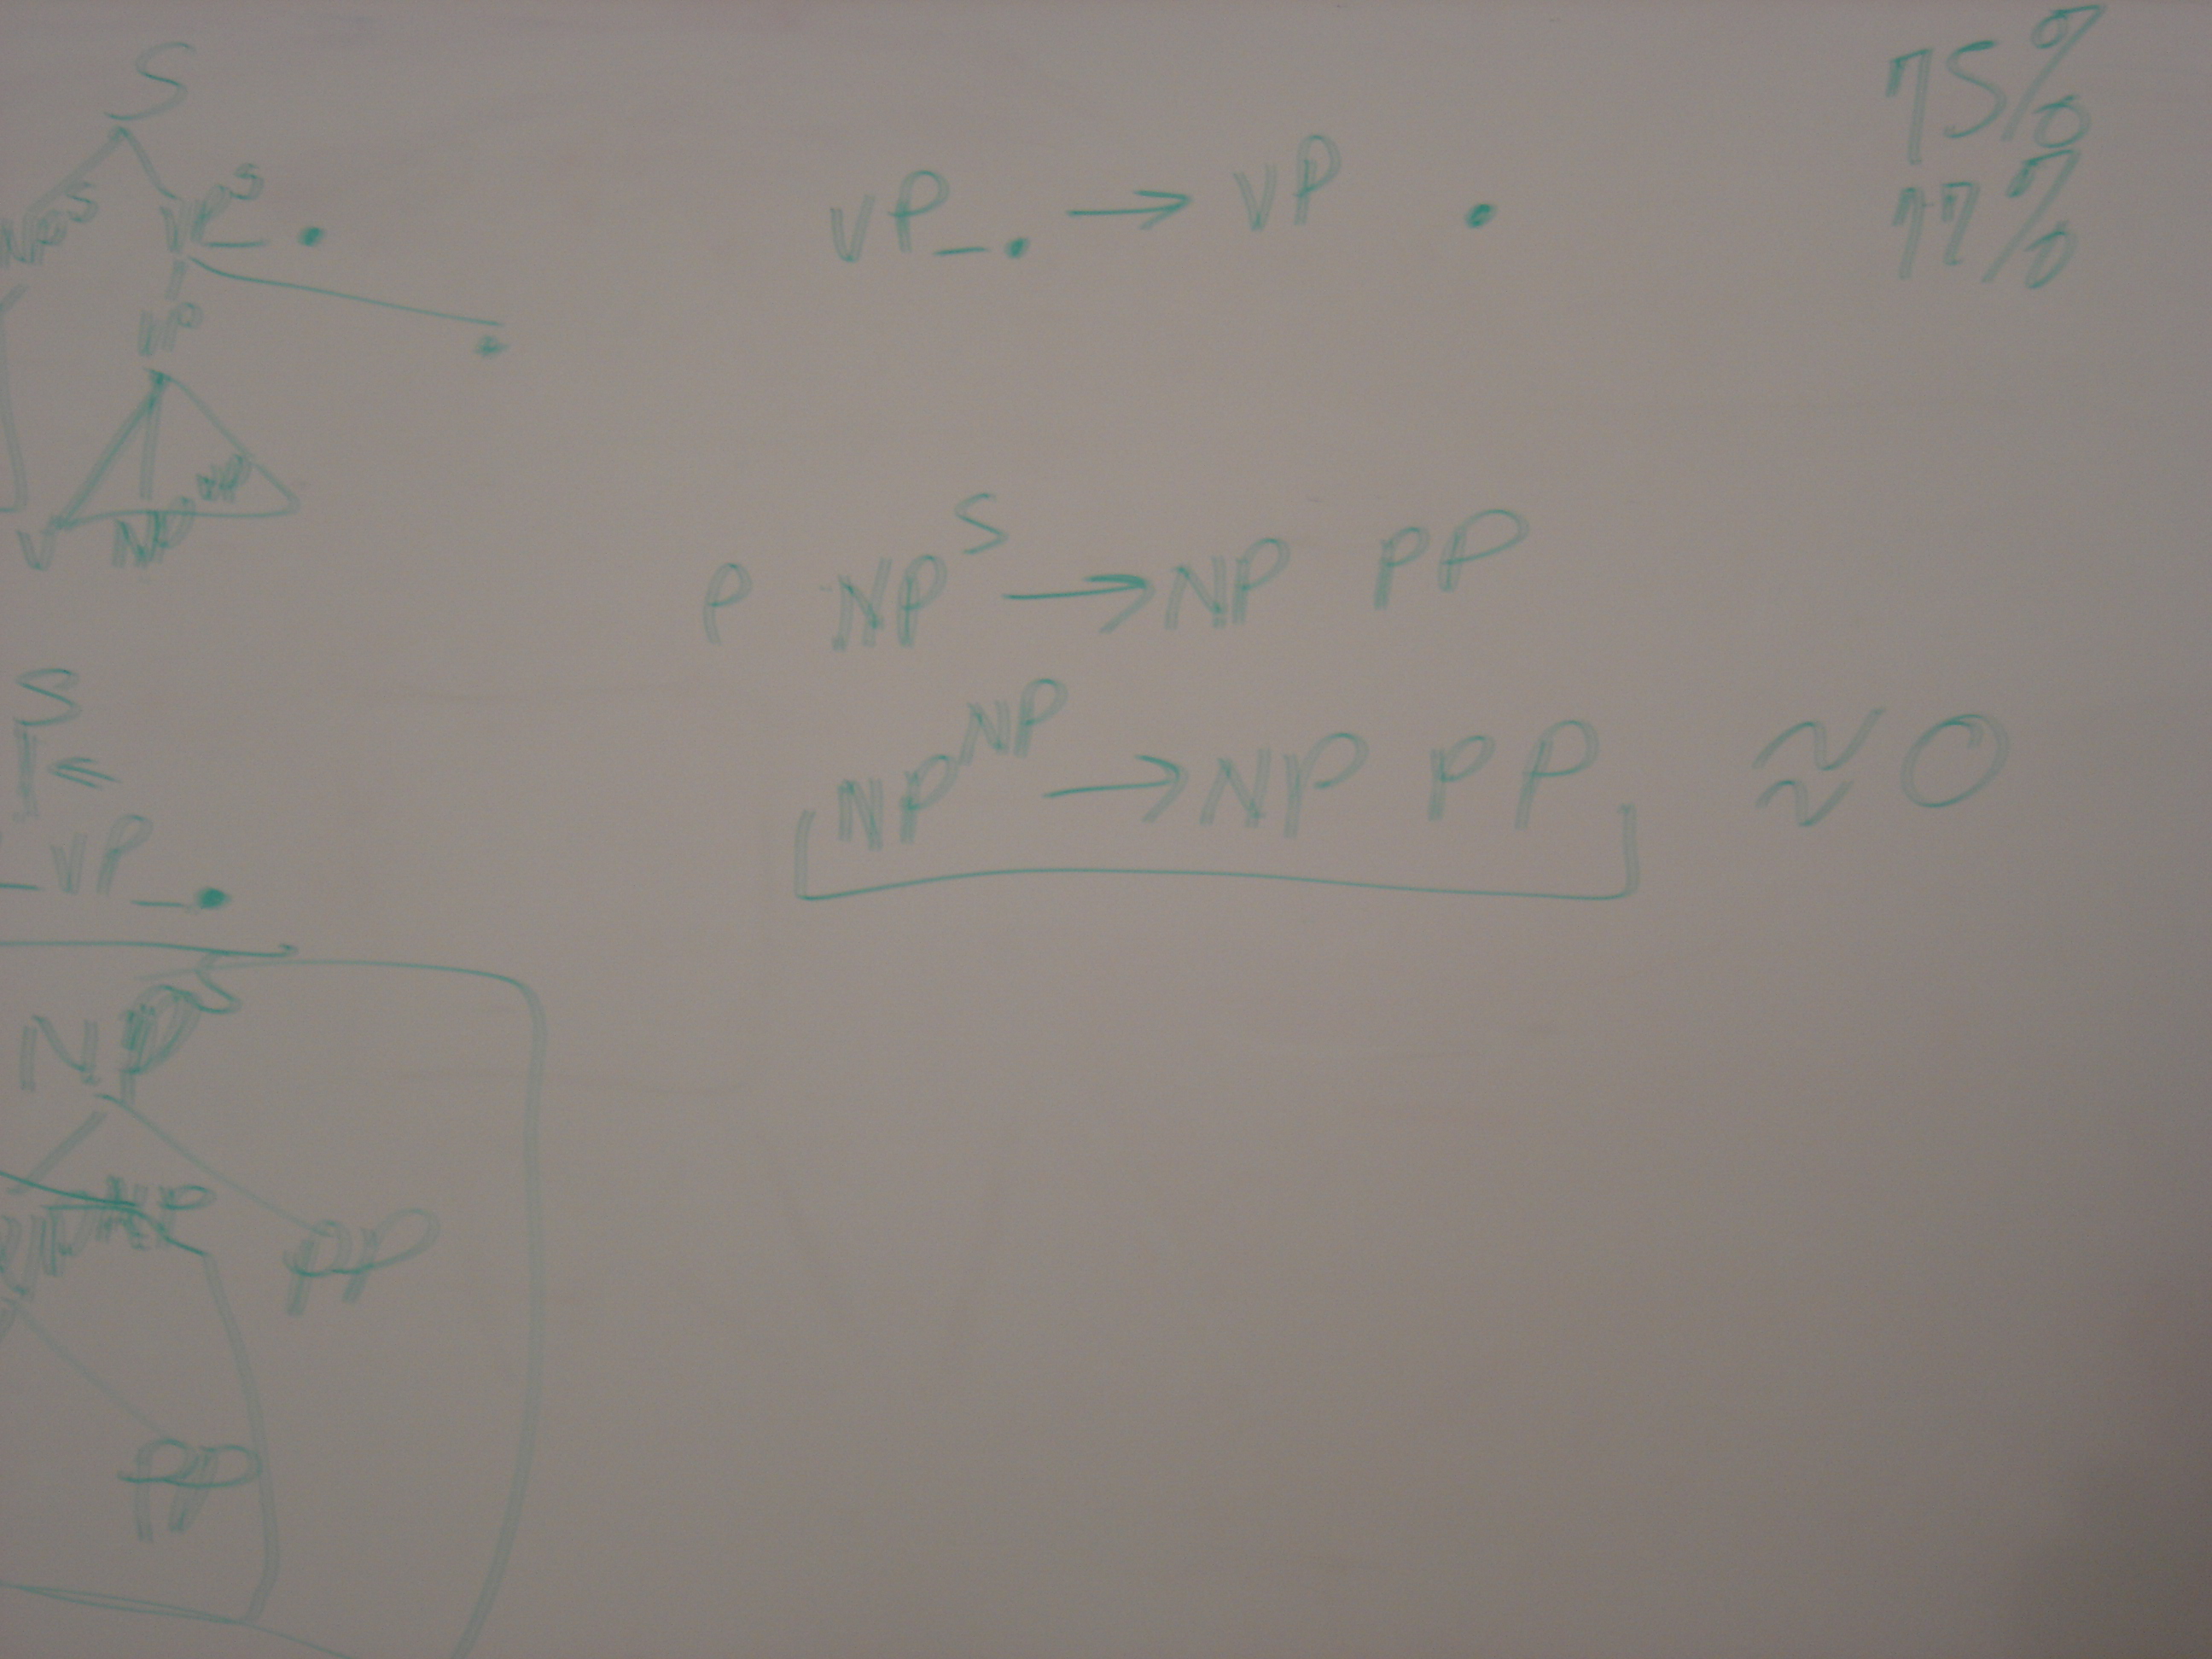 S
75%
77%
NP^S VP^S_.
VP_. → VP .
VP
V NP^VP
P NP^S → NP PP
NP^NP → NP PP ≈ 0
S
←
_VP_.
NP^S
NP^NP
PP
PP